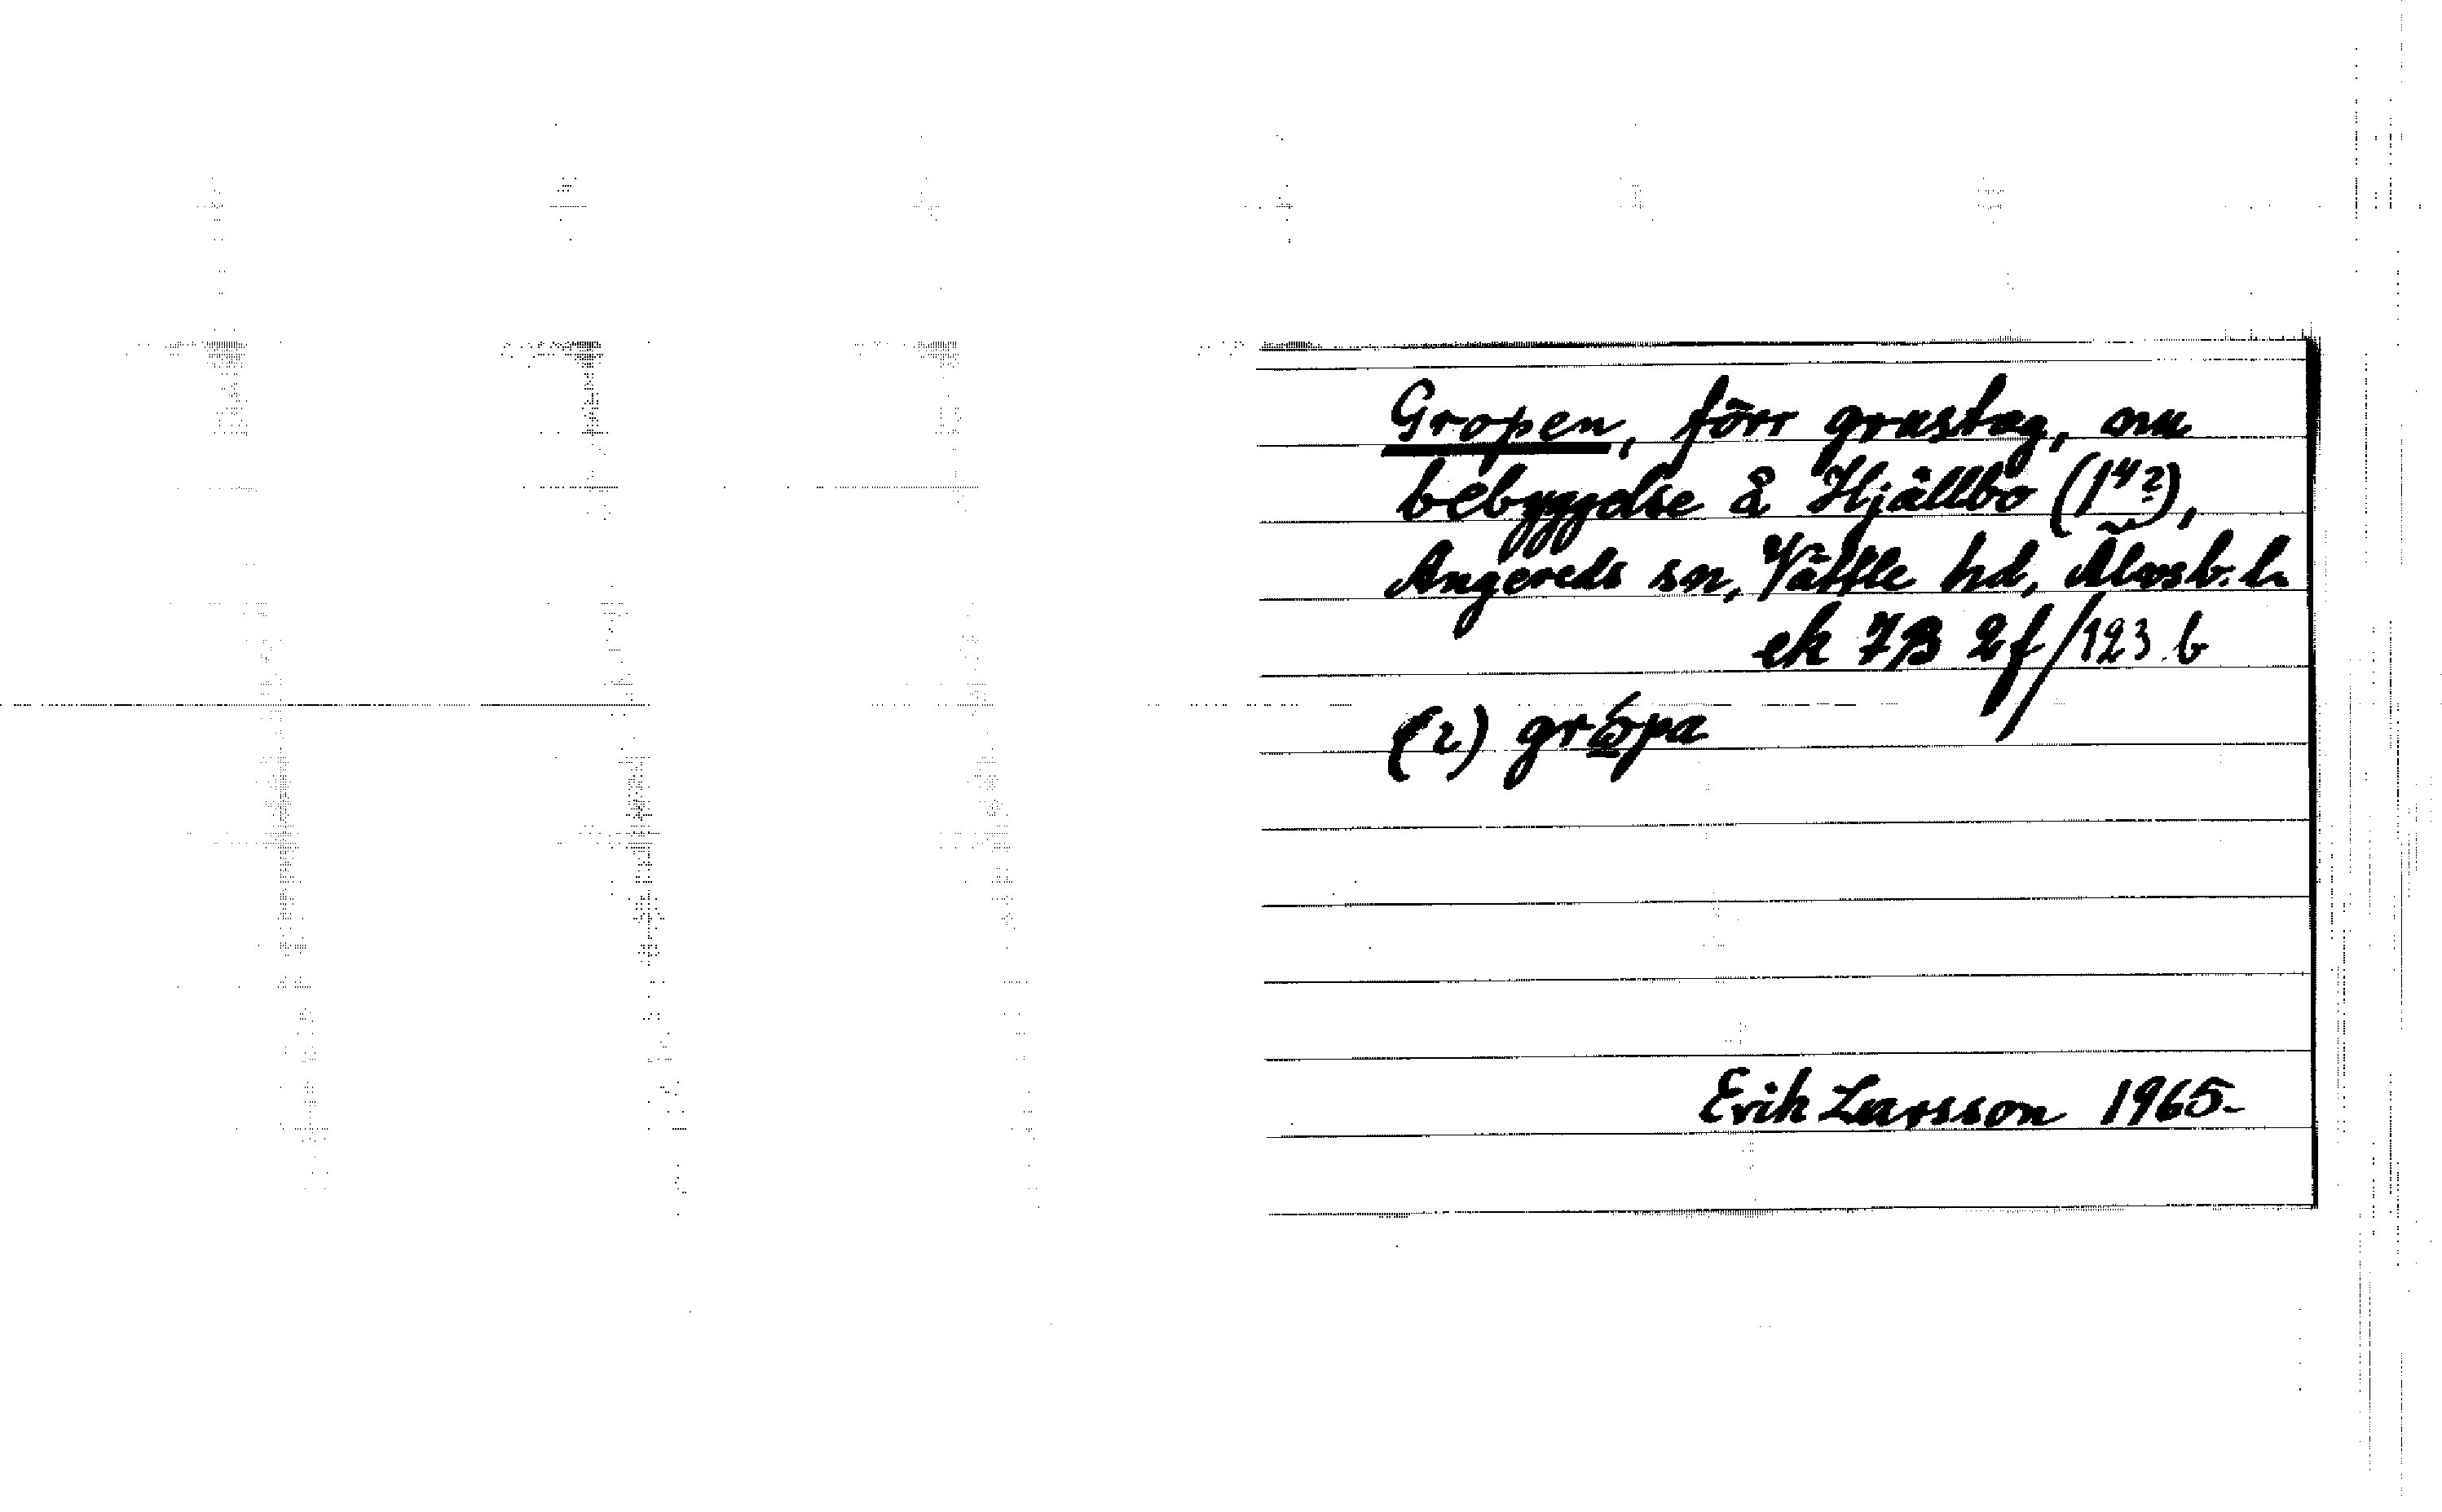 Gropen, förr grustag, nu
bebyggelse å Hjällbo (1⁴²),
Angereds sn, Vättle hd, Älvsb. l.
ek 7B 2f/123 b
(2) gròpa
Erik Larsson 1965-